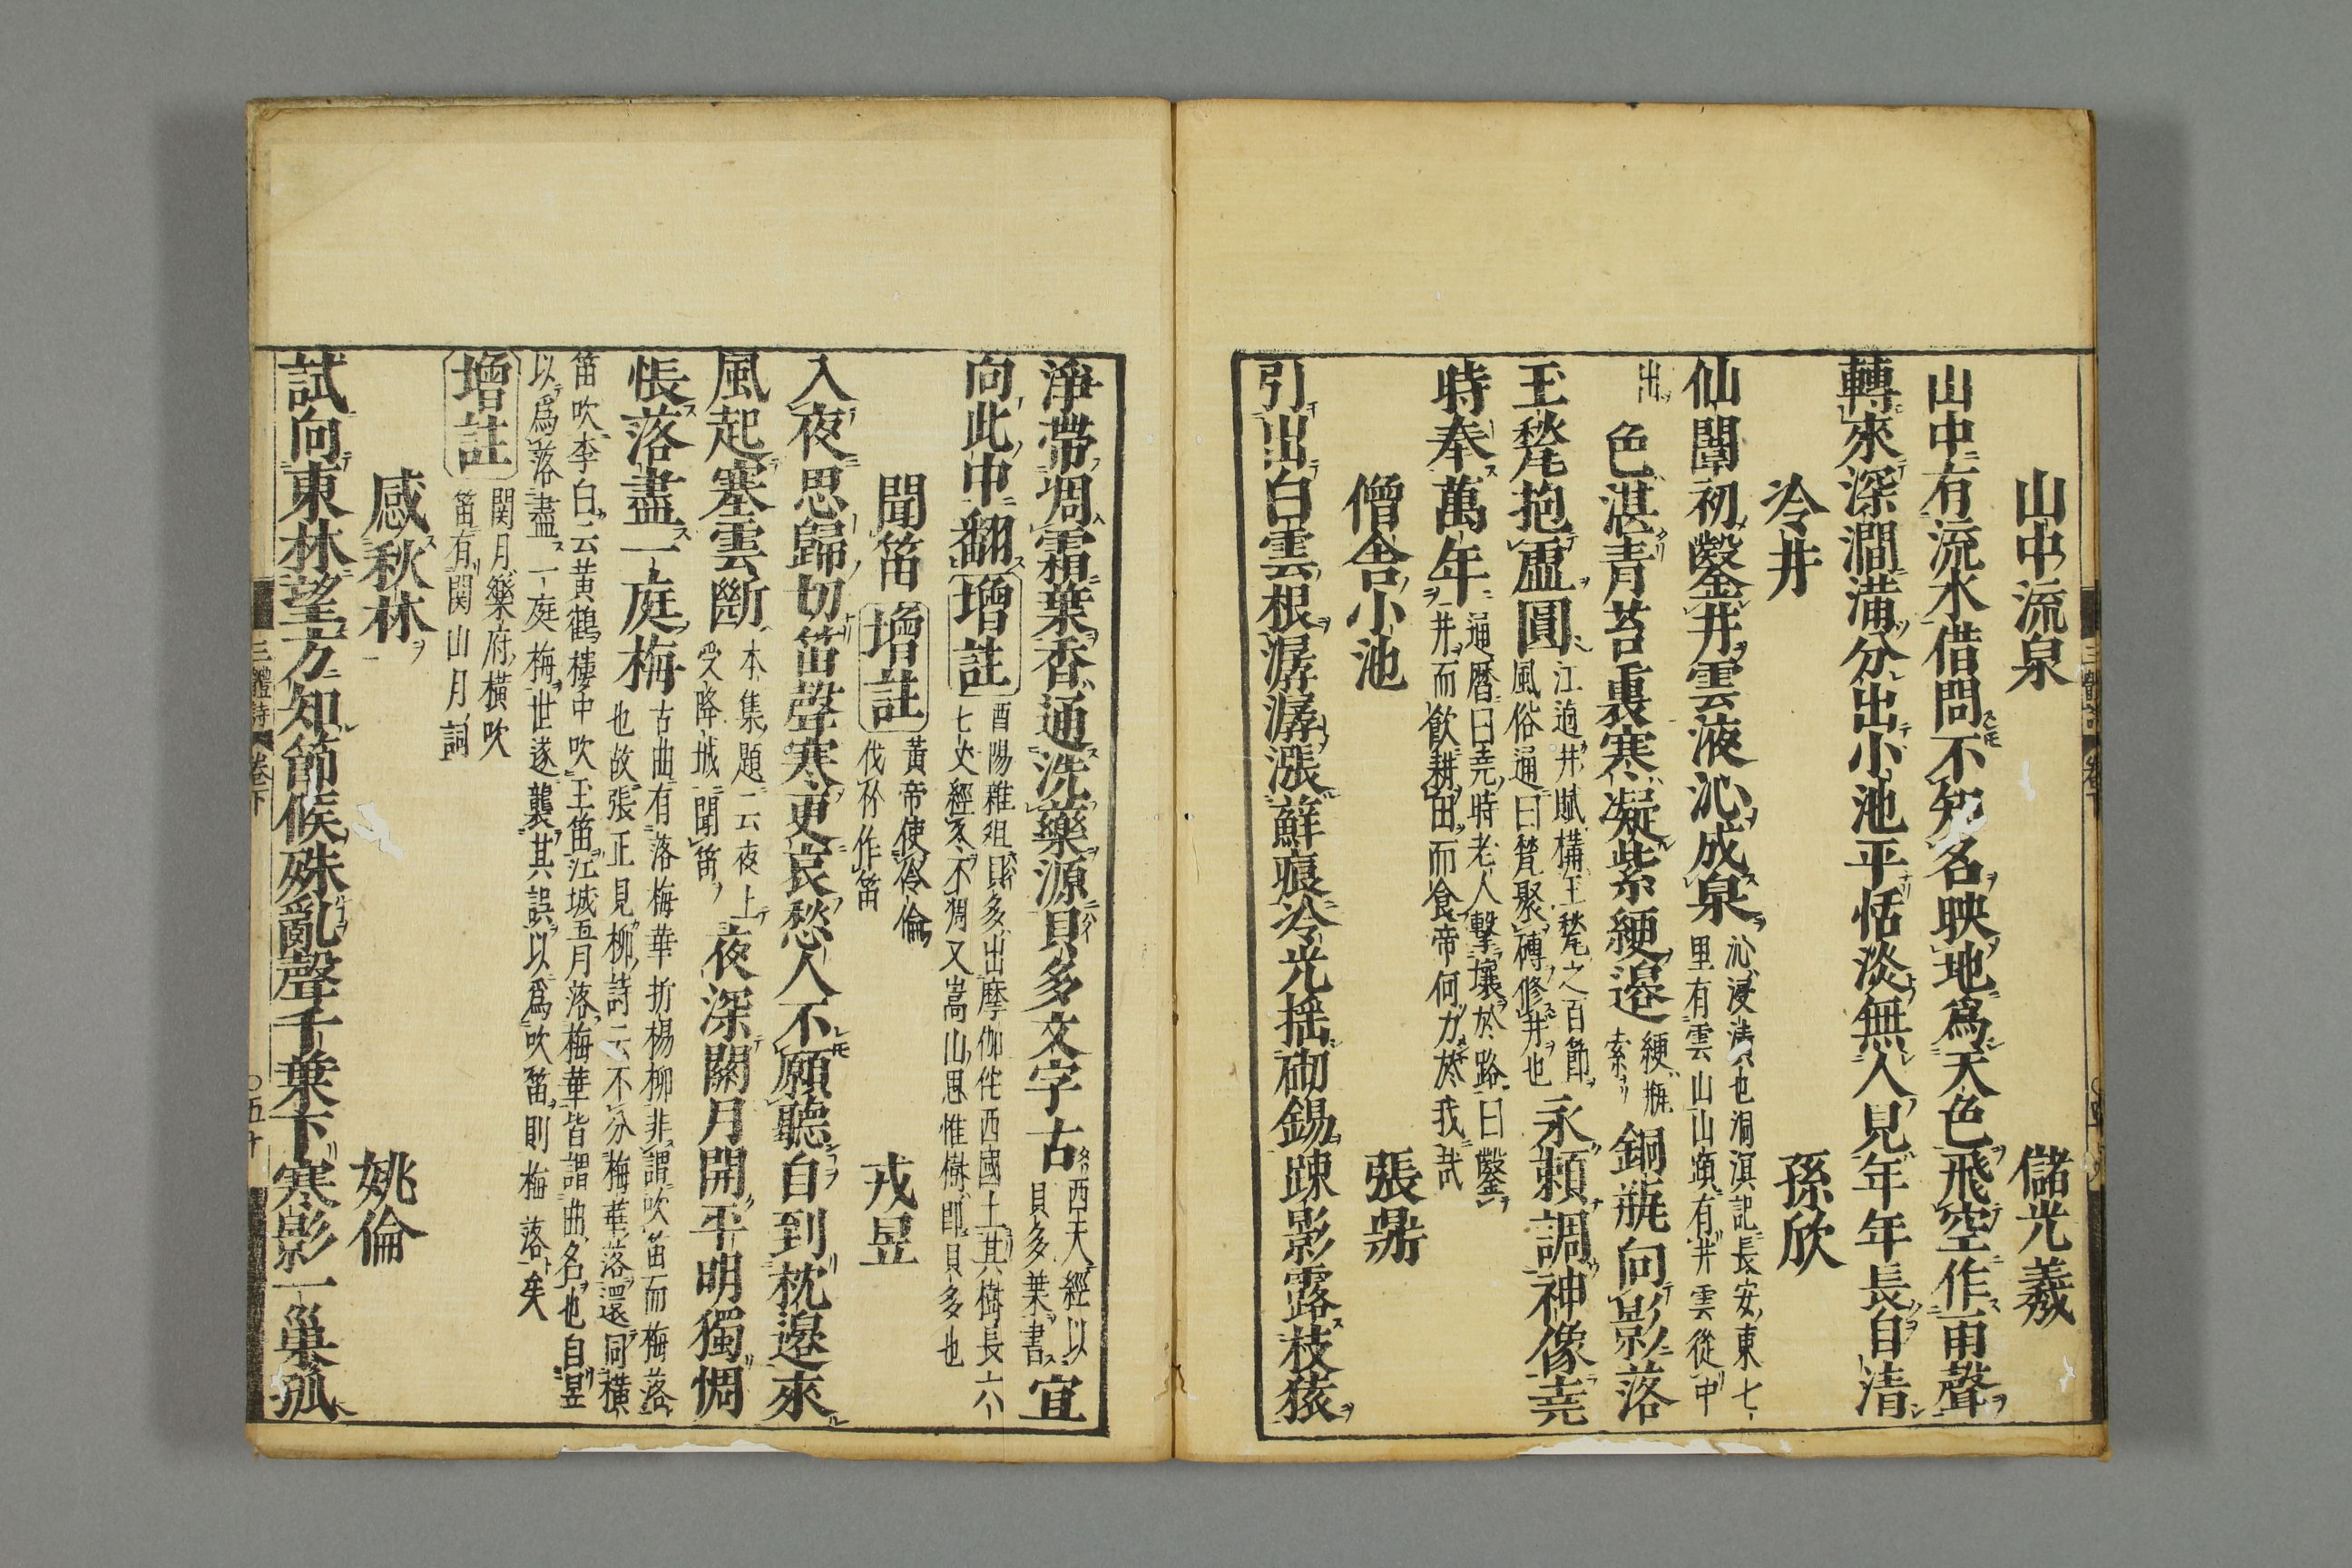 山中流泉　儲光羲
山中有流水借問不知名映地爲天色飛空作雨聲
轉來深澗滿分出小池平恬淡無人見年年長自清
冷井　孫欣
仙闈初鑿井雲液沁成泉
沁浸漬也洞淇記長安東七
里有雲山山頂有井雲從中
出
色湛青苔裏寒凝紫綆邊
綆瓶
索
銅瓶向影落
玉甃抱虛圓
江逌井賦構玉甃之百節
風俗通曰甃聚磚修井也
永賴調神像堯
時奉萬年
通曆曰堯時老人擊壤於路曰鑿
井而飲耕田而食帝何力於我哉
僧舍小池　張鼎
引出白雲根潺潺漲蘚痕冷光搖砌錫疎影露枝猿
淨帶凋霜葉香通洗藥源貝多文字古
西天經以
貝多葉書
宜
向此中翻
增註
酉陽雜俎貝多出摩伽佗西國土其樹長六
七丈經冬不凋又嵩山思惟樹即貝多也
聞笛
增註
黃帝使伶倫
伐竹作笛
戎昱
入夜思歸切笛聲寒更哀愁人不願聽自到枕邊來
風起塞雲斷
本集題云夜上
受降城聞笛
夜深關月開平明獨惆
悵落盡一庭梅
古曲有落梅華折楊柳非謂吹笛而梅落
也故張正見柳詩云不分梅華落還同橫
笛吹李白云黃鶴樓中吹玉笛江城五月落梅華皆謂曲名也自昱
以爲落盡一庭梅世遂襲其誤以爲吹笛則梅落矣
增註
関月樂府橫吹
笛有関山月詞
感秋林　姚倫
試向東林望方知節候殊亂聲千葉下寒影一巢孤
三體詩　卷下　〇五十